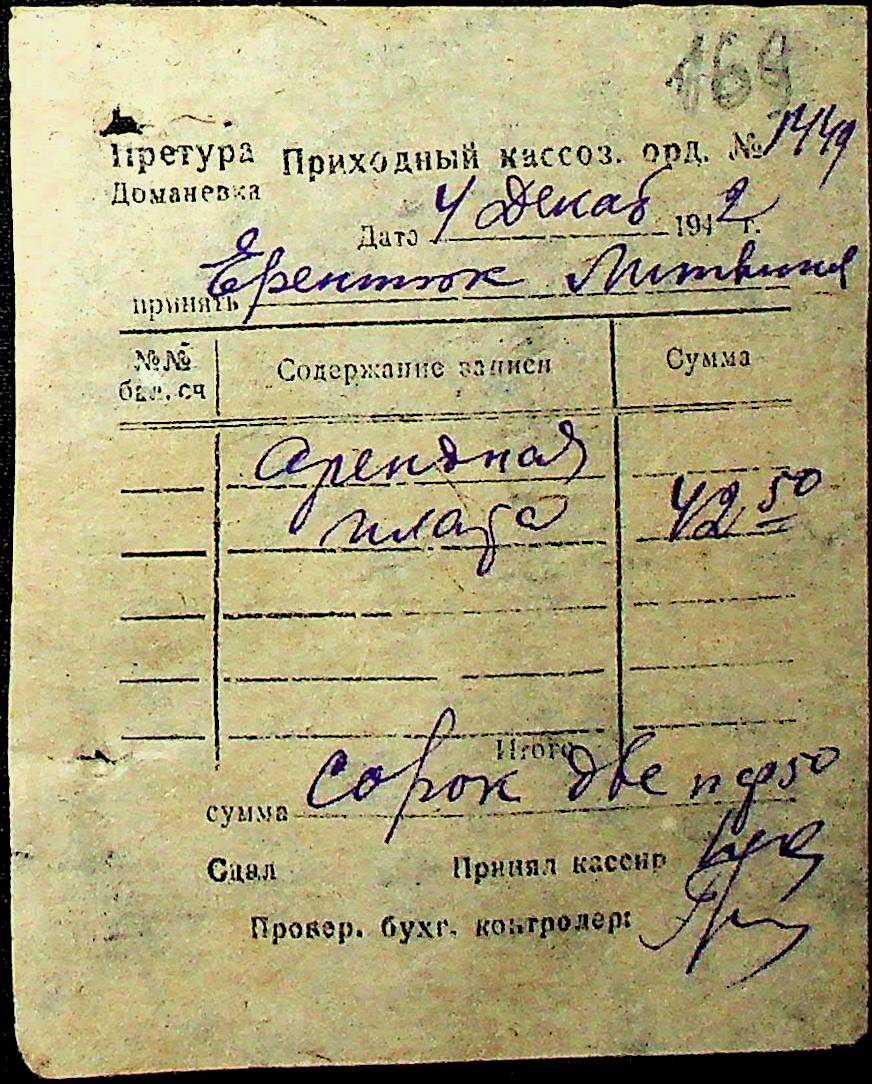 169
Претура Приходный кассоз. орд. № 1449
Доманевка
Дата 4 Декаб 1942 г.
принять Ерентюк
№№ Содержание записи Сумма
бал. сч
арендная
плата 42 50
Итого
сумма сорок две п ф 50
Сдал Принял кассир
Провер. бухг. контролер: